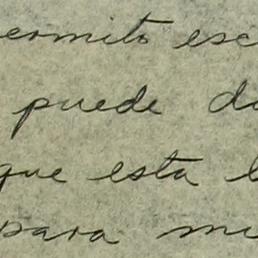 ermito esc
puede da
que esta l
para mu